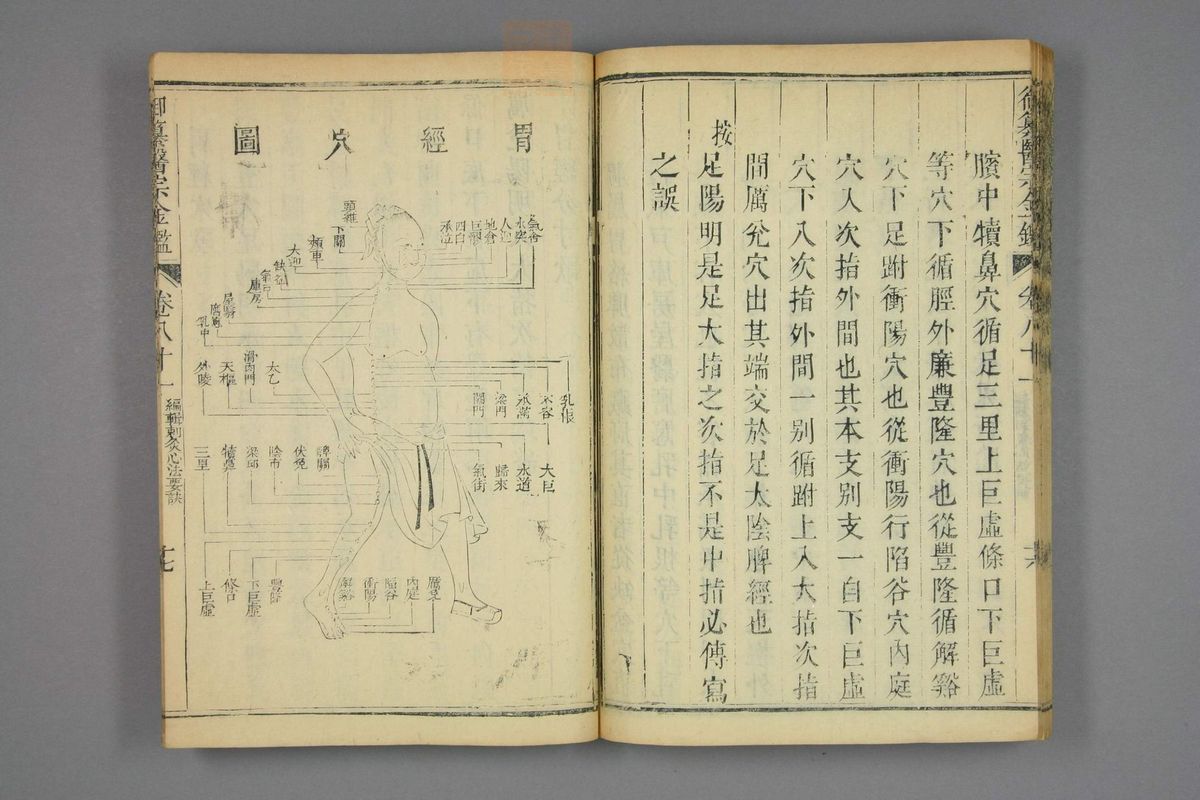 臏中犢鼻穴循足三里上巨虛條口下巨虛
等穴下循脛外廉豐隆穴也從豐隆循解谿
穴下足跗衝陽穴也從衝陽行陷谷穴內庭
穴入次指外間也其本支別支一自下巨虛
穴下入次指外間一別循跗上入大指次指
間厲兌穴出其端交於足太陰脾經也
按
足陽明是足大指之次指不是中指必傳寫
之誤
卷八十一
胃經穴圖
氣舍
水突
人迎
地倉
巨髎
四白
承泣
頭維
下關
頰車
大迎
缺盆
氣戶
庫房
屋翳
膺窗
乳中
乳根
不容
承滿
梁門
關門
太乙
滑肉門
天樞
外陵
大巨
水道
歸來
氣街
髀關
伏兔
陰市
梁邱
犢鼻
三里
厲兌
內庭
陷谷
衝陽
解谿
豐隆
下巨虛
條口
上巨虛
御纂醫宗金鑑
卷八十一
編輯刺灸心法要訣